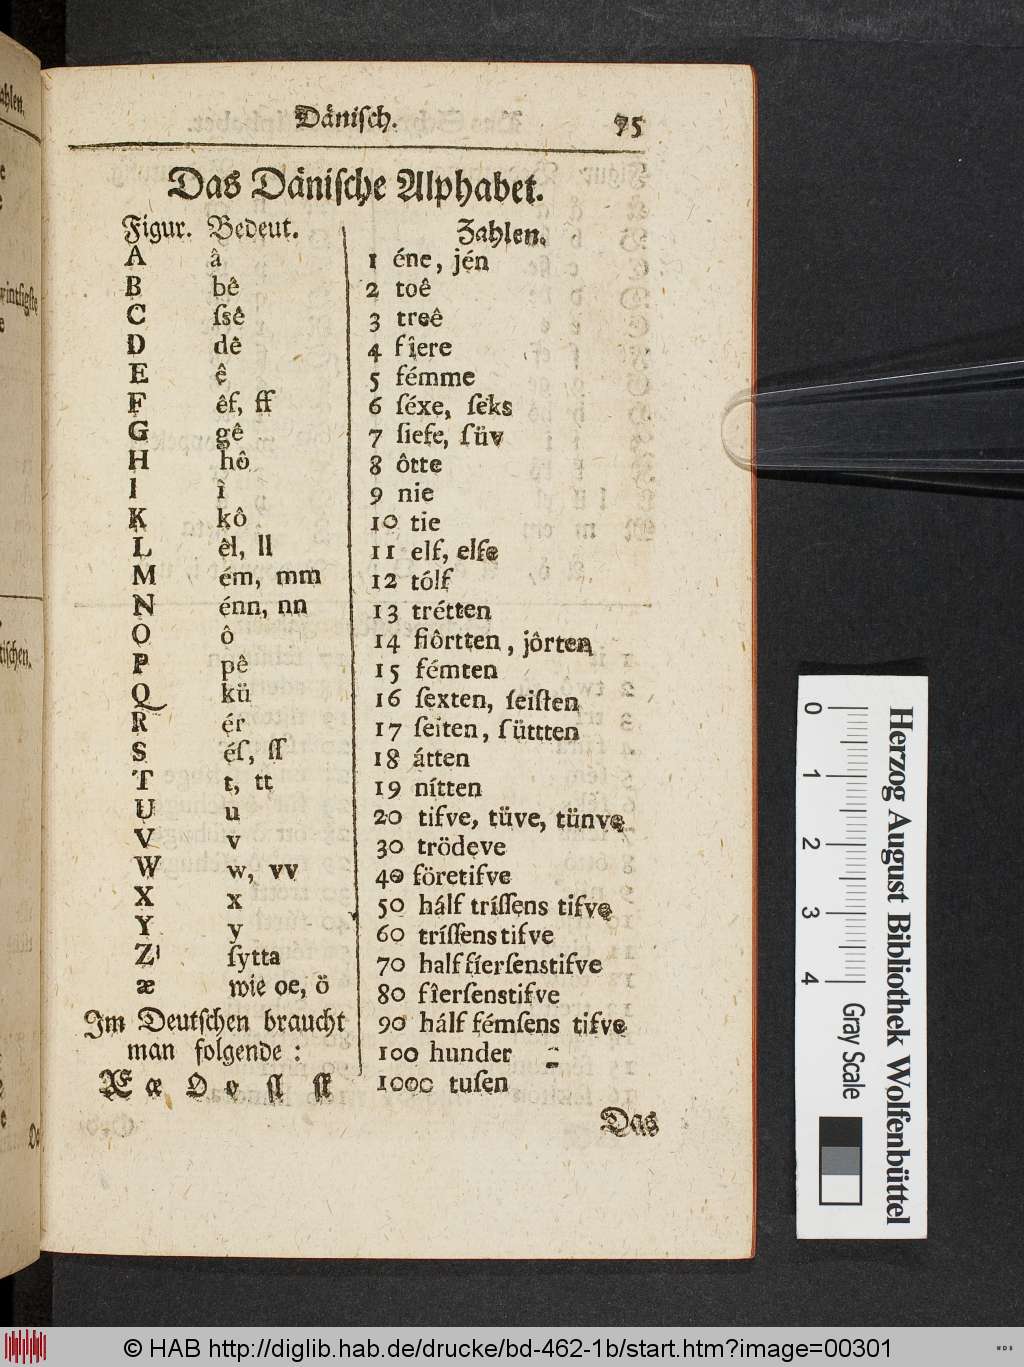 Däniſch. 75
Das Däniſche Alphabet.
Figur. Bedeut.
A â
B bê
C ſsê
D dê
E ê
F êf, ff
G gê
H hô
I ì
K kô
L êl, ll
M ém, mm
N énn, nn
O ô
P pê
Q kü
R ér
S éſ, ſſ
T t, tt
U u
V v
W w, vv
X x
Y y
Z ſytta
æ wie oe, ö
Im Deutſchen braucht
man folgende :
Æ æ Ø ø ſl ſk
Zahlen.
1 éne, jén
2 toê
3 treê
4 fîere
5 fémme
6 ſéxe, ſeks
7 ſiefe, ſüv
8 ôtte
9 nie
10 tie
11 elf, elfe
12 tólf
13 trétten
14 fiôrtten, jôrten
15 fémten
16 ſexten, ſeiſten
17 ſeiten, ſüttten
18 átten
19 nítten
20 tifve, tüve, tünve
30 trödeve
40 företifve
50 hálf tríſſens tifve
60 tríſſenstifve
70 half fíerſenstifve
80 fîerſenstifve
90 hálf fémſens tifve
100 hunder
1000 tuſen
Das
Herzog August Bibliothek Wolfenbüttel
0 1 2 3 4
Gray Scale
© HAB http://diglib.hab.de/drucke/bd-462-1b/start.htm?image=00301